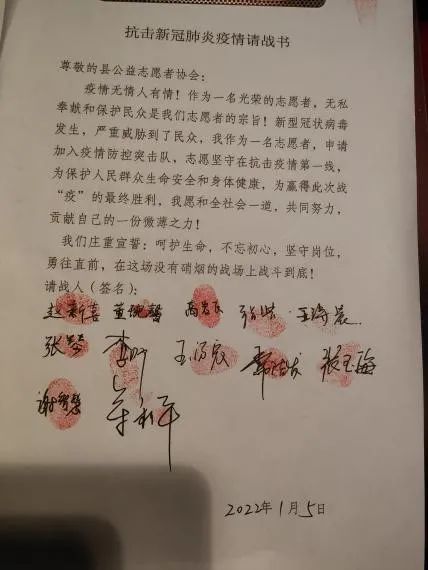 抗击新冠肺炎疫情请战书
尊敬的县公益志愿者协会：
疫情无情人有情！作为一名光荣的志愿者，无私
奉献和保护民众是我们志愿者的宗旨！新型冠状病毒
发生，严重威胁到了民众，我作为一名志愿者，申请
加入疫情防控突击队，志愿坚守在抗击疫情第一线，
为保护人民群众生命安全和身体健康，为赢得此次战
“疫”的最终胜利，我愿和全社会一道，共同努力，
贡献自己的一份微薄之力！
我们庄重宣誓：呵护生命，不忘初心，坚守岗位，
勇往直前，在这场没有硝烟的战场上战斗到底！
请战人（签名）：
赵新喜 王海晨
张琴 张玉海
2022年1月5日